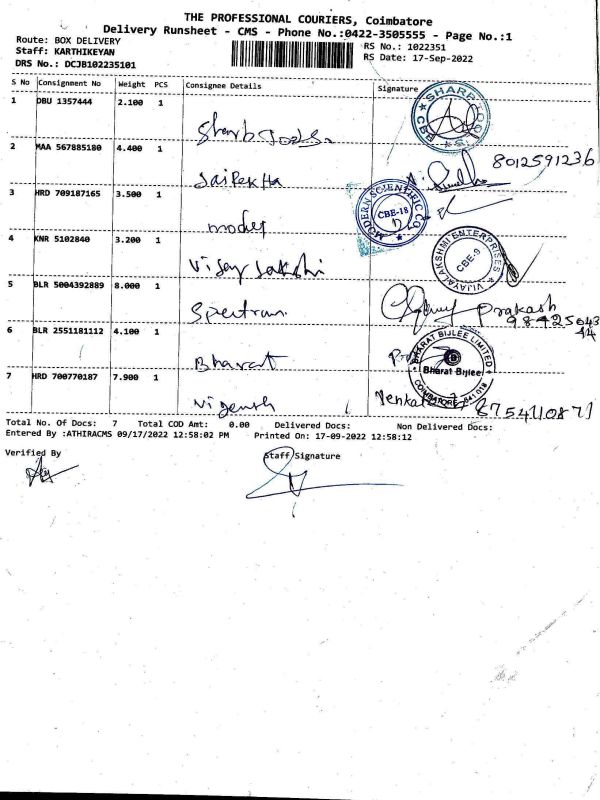 THE PROFESSIONAL COURIERS, Coimbatore
Delivery Runsheet - CMS - Phone No.:0422-3505555 - Page No.:1
Route: BOX DELIVERY
Staff: KARTHIKEYAN
DRS No.: DCJB102235101
RS No.: 1022351
RS Date: 17-Sep-2022
S No Consignment No Weight PCS Consignee Details Signature
1 DBU 1357444 2.100 1 Sharb Tools
SHARP TOOLS CBE
2 MAA 567885180 4.400 1 SaiRekha 8012591236
3 HRD 709187165 3.500 1 modern
MODERN SCIENTIFIC CO. CBE-18
4 KNR 5102840 3.200 1 Vijay Lakshi
VIJAYALAKSHMI ENTERPRISES CBE-9
5 BLR 5004392889 8.000 1 Spectrum Prakash
9842504344
6 BLR 2551181112 4.100 1 Bharat
BHARAT BIJLEE LIMITED
Bharat Bijlee
COIMBATORE-641018
7 HRD 700770187 7.900 1 Vigensh 8754110871
Total No. Of Docs: 7 Total COD Amt: 0.00 Delivered Docs: Non Delivered Docs:
Entered By :ATHIRACMS 09/17/2022 12:58:02 PM Printed On: 17-09-2022 12:58:12
Verified By
Staff Signature